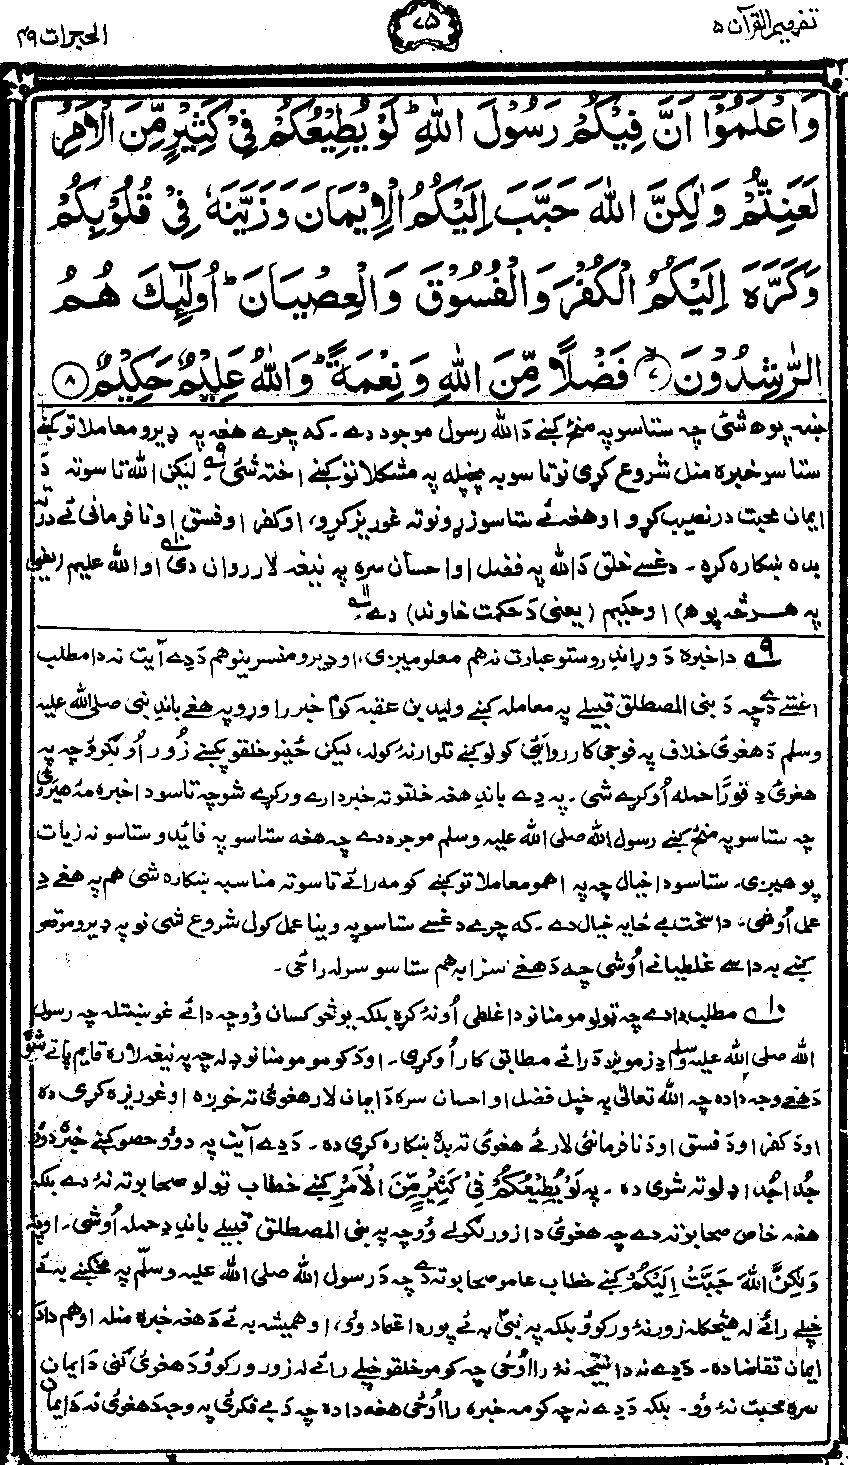 تفہیم القرآن ۵ ۷۵ الحجرات ۴۹
وَاعْلَمُوْٓا اَنَّ فِيْكُمْ رَسُوْلَ اللّٰهِ ؕ لَوْ يُطِيْعُكُمْ فِيْ كَثِيْرٍ مِّنَ الْاَمْرِ
لَعَنِتُّمْ وَلٰكِنَّ اللّٰهَ حَبَّبَ اِلَيْكُمُ الْاِيْمَانَ وَزَيَّنَهٗ فِيْ قُلُوْبِكُمْ
وَكَرَّهَ اِلَيْكُمُ الْكُفْرَ وَالْفُسُوْقَ وَالْعِصْيَانَ ؕ اُولٰٓئِكَ هُمُ
الرّٰشِدُوْنَ ۙ﴿۷﴾ فَضْلًا مِّنَ اللّٰهِ وَنِعْمَةً ؕ وَاللّٰهُ عَلِيْمٌ حَكِيْمٌ ﴿۸﴾
ښه پوهه شئ چه ستاسو په منځ کښے دَ الله رسول موجود دے۔ که چرے هغه په ډیرو معاملاتو کښے
ستاسو خبره منل شروع کړی نو تاسو به پخپله په مشکلاتو کښے اخته شئ ۹؎ لیکن الله تاسو ته دَ
ایمان محبت در نصیب کړو او هغه ئے ستاسو زړونو ته غوریز کړو، او کفر او فسق او نا فرمانی ئے درته
بده ښکاره کړه۔ دغسے خلق دَ الله په فضل او احسان سره په نیغه لار روان دی ۱۰؎ او الله علیم (یعنی
په هر څه پوه) او حکیم (یعنی دَ حکمت خاوند) دے ۱۱؎
۹؎ دا خبره دَ وړاندِ روستو عبارت نه هم معلومیږی، او ډیرو مفسرینو هم دَ دے آیت نه دا مطلب
اغستے دے چه دَ بنی المصطلق قبیلے په معامله کښے ولید بن عقبه کوم خبر راوړو په هغے باندِ نبی صلی الله علیه
وسلم دَ هغوئ خلاف په فوجی کارروائی کولو کښے تلوار نۀ کوله، لیکن ځینو خلقو پکښے زور اولګوؤ چه په
هغوئ دِ فوراً حمله اوکړے شی۔ په دے باندِ هغه خلقو ته خبرداری ورکړے شو چه تاسو دا خبره مۀ هیروئ
چه ستاسو په منځ کښے رسول الله صلی الله علیه وسلم موجود دے چه هغه ستاسو په فائدو ستاسو نه زیات
پوهیږی۔ ستاسو دا خیال چه په اهمو معاملاتو کښے کومه رائے تاسو ته مناسبه ښکاره شی هم په هغے دِ
عمل اوشی۔ دا سخت بے ځایه خیال دے۔ که چرے دغسے ستاسو په وینا عمل کول شروع شی نو په ډیرو موقعو
کښے به داسے غلطیانے اوشی چه دَ هغے سزا به هم ستاسو سوله راځی۔
۱۰؎ مطلب دا دے چه ټولو مومنانو دا غلطی اونۀ کړه بلکه یو څو کسان وؤ چه دا ئے غوښتله چه رسول
الله صلی الله علیه وسلم دِ زمونږ دَ رائے مطابق کار اوکړی۔ او دَ کومو مومنانو ډله چه په نیغه لاره قایم پاتے شوه
دَ هغے وجه دا ده چه الله تعالیٰ په خپل فضل او احسان سره دَ ایمان لار هغوئ ته خوږه او غوریزه کړی ده
او دَ کفر او دَ فسق او دَ نافرمانئ لار ئے هغوئ ته بده ښکاره کړی ده۔ دَ دے آیت په دوؤ حصو کښے خبره دوؤ
جدا جدا ډلو ته شوی ده۔ په لَوْ يُطِيْعُكُمْ فِيْ كَثِيْرٍ مِّنَ الْاَمْرِ کښے خطاب ټولو صحابو ته نۀ دے بلکه
هغه خاص صحابو ته دے چه هغوئ دا زور لګولے وؤ چه په بنی المصطلق قبیلے باندِ دِ حمله اوشی۔ او په
وَلٰكِنَّ اللّٰهَ حَبَّبَ اِلَيْكُمْ کښے خطاب عامو صحابو ته دے چه دَ رسول الله صلی الله علیه وسلم په مخکښے به ئے
خپلے رائے له هیچکله زور نۀ ورکوؤ بلکه په نبیؐ به ئے پوره اعتماد وؤ، او همیشه به ئے دَ هغه خبره منله او هم دا دَ
ایمان تقاضا ده۔ دَ دے نه دا نتیجه نۀ رااوځی چه کومو خلقو خپلے رائے له زور ورکوؤ دَ هغوئ کښی دَ ایمان
سره محبت نۀ وؤ۔ بلکه دَ دے نه چه کومه خبره رااوځی هغه دا ده چه دَ بے فکرئ په وجه دَ هغوئ نه دَ ایمان